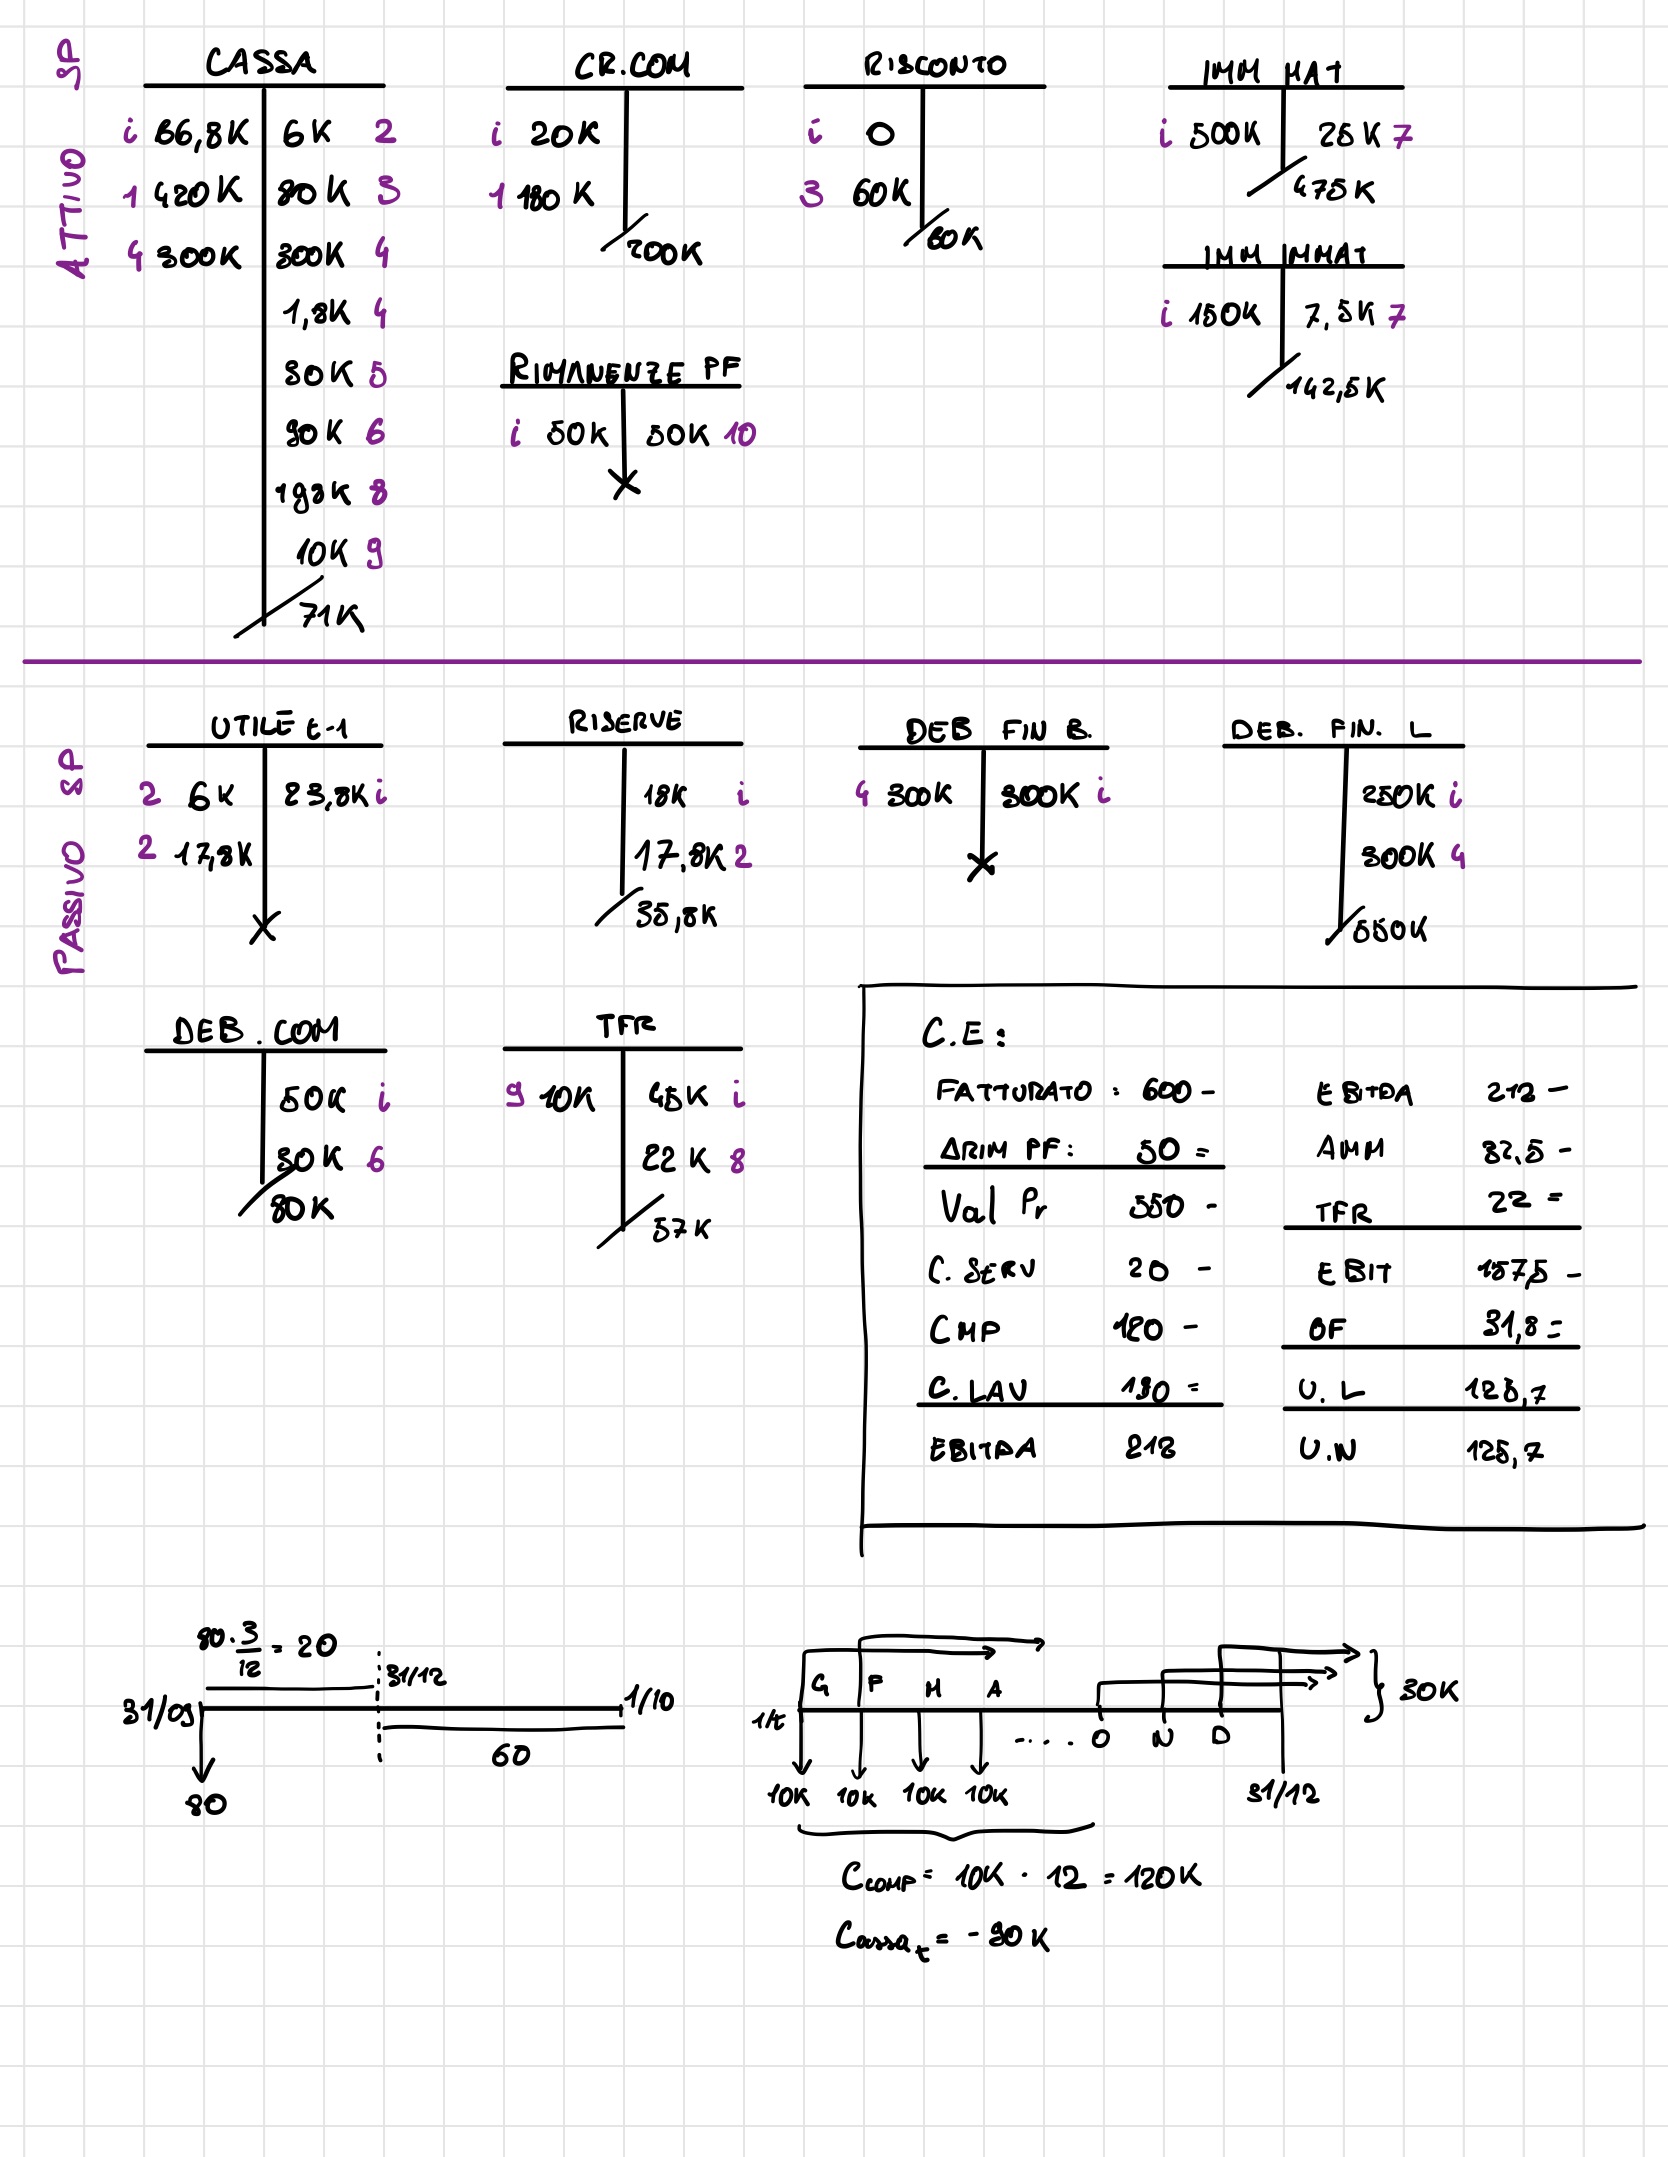 ATTIVO SP
CASSA
i 66,8K 6K 2
1 420K 80K 3
4 300K 300K 4
1,8K 4
30K 5
90K 6
198K 8
10K 9
71K
CR.COM
i 20K
1 180K
200K
RIMANENZE PF
i 50K 50K 10
RISCONTO
i 0
3 60K
60K
IMM MAT
i 500K 25K 7
475K
IMM IMMAT
i 150K 7,5K 7
142,5K
PASSIVO SP
UTILE t-1
2 6K 23,8K i
2 17,8K
RISERVE
18K i
17,8K 2
35,8K
DEB FIN B.
4 300K 300K i
DEB. FIN. L
250K i
300K 4
550K
DEB. COM
50K i
30K 6
80K
TFR
9 10K 45K i
22K 8
57K
C.E:
FATTURATO : 600 -
ΔRIM PF: 50 =
Val Pr 550 -
C. SERV 20 -
CMP 120 -
C. LAV 198 =
EBITDA 212
EBITDA 212 -
AMM 32,5 -
TFR 22 =
EBIT 157,5 -
OF 31,8 =
U. L 125,7
U.N 125,7
80 · 3/12 = 20
31/12
31/09
1/10
60
80
G F M A
1/t
.... O N D
30K
10K 10K 10K 10K
31/12
Ccomp = 10K · 12 = 120K
Cassat = - 90K